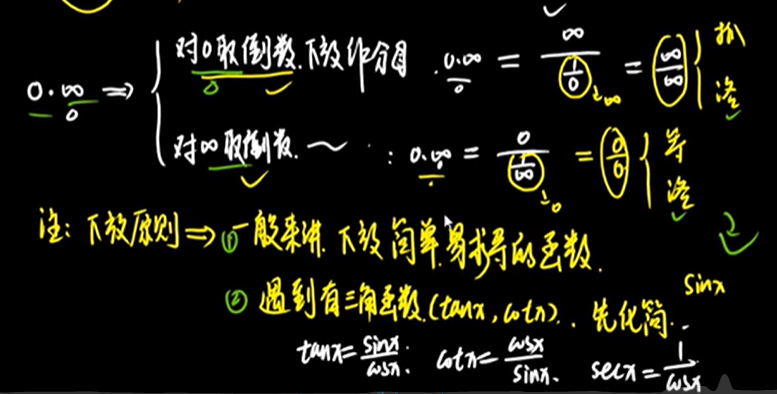 0·∞ ⇒ { 对0取倒数.下放作分母. 0·∞ = ∞/(1/0) = (∞/∞) { 抓 洛
对∞取倒数. ~ : 0·∞ = 0/(1/∞) = (0/0) { 等 洛
注: 下放原则 ⇒ ① 一般来讲.下放简单.易求导的函数.
② 遇到有三角函数.(tanx, cotx)., 先化简. sinx
tanx = sinx/cosx. cotx = cosx/sinx. secx = 1/cosx